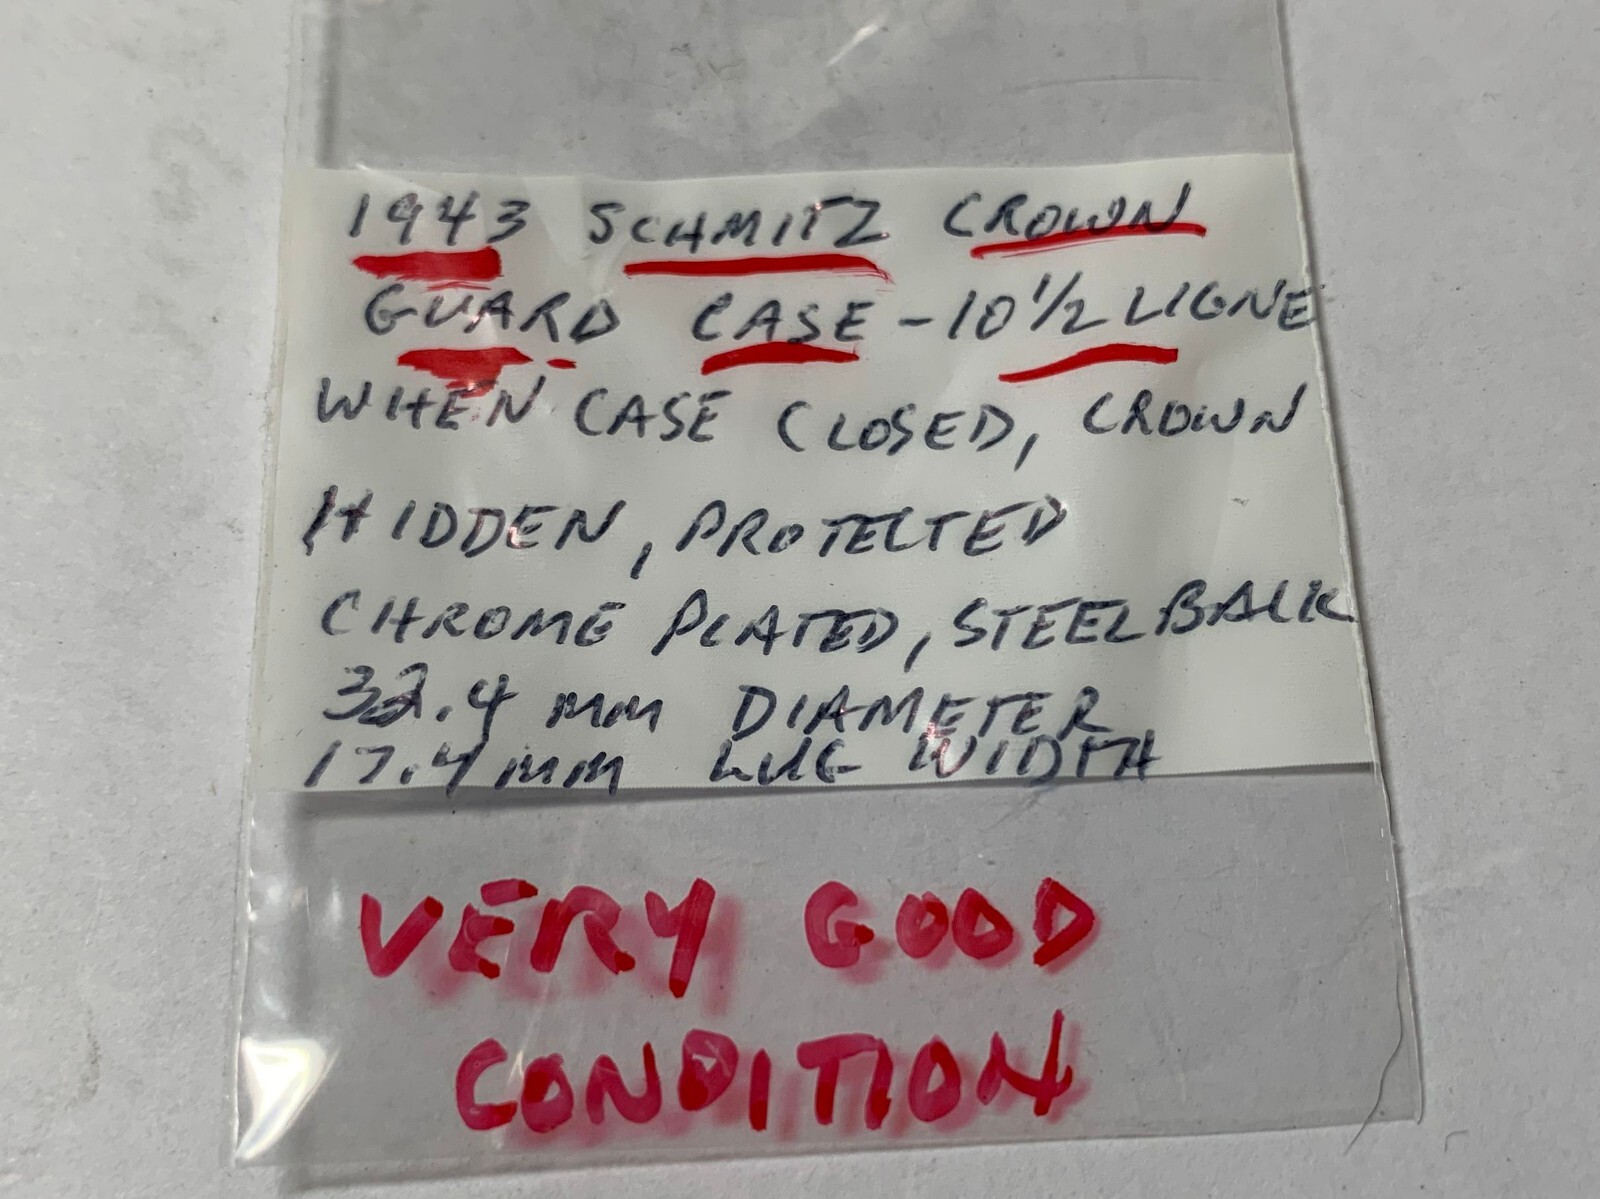 1943 SCHMITZ CROWN
GUARD CASE - 10 1/2 LIGNE
WHEN CASE CLOSED, CROWN
HIDDEN, PROTECTED
CHROME PLATED, STEEL BACK
32.4 mm DIAMETER
17.4 mm LUG WIDTH
VERY GOOD
CONDITION